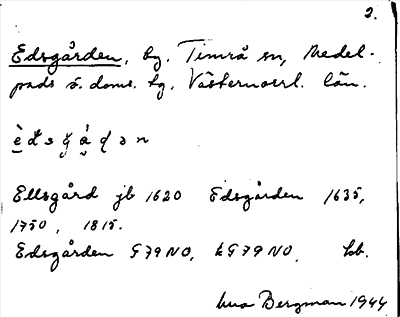 2.
Edsgården, by. Timrå sn, Medel-
pads ö. doms. tg. Västernorrl. län.
Ellsgård jb 1620 Edsgården 1635,
1750, 1815.
Edsgården G 79 NO, kG 79 NO, bb.
Bergman 1944